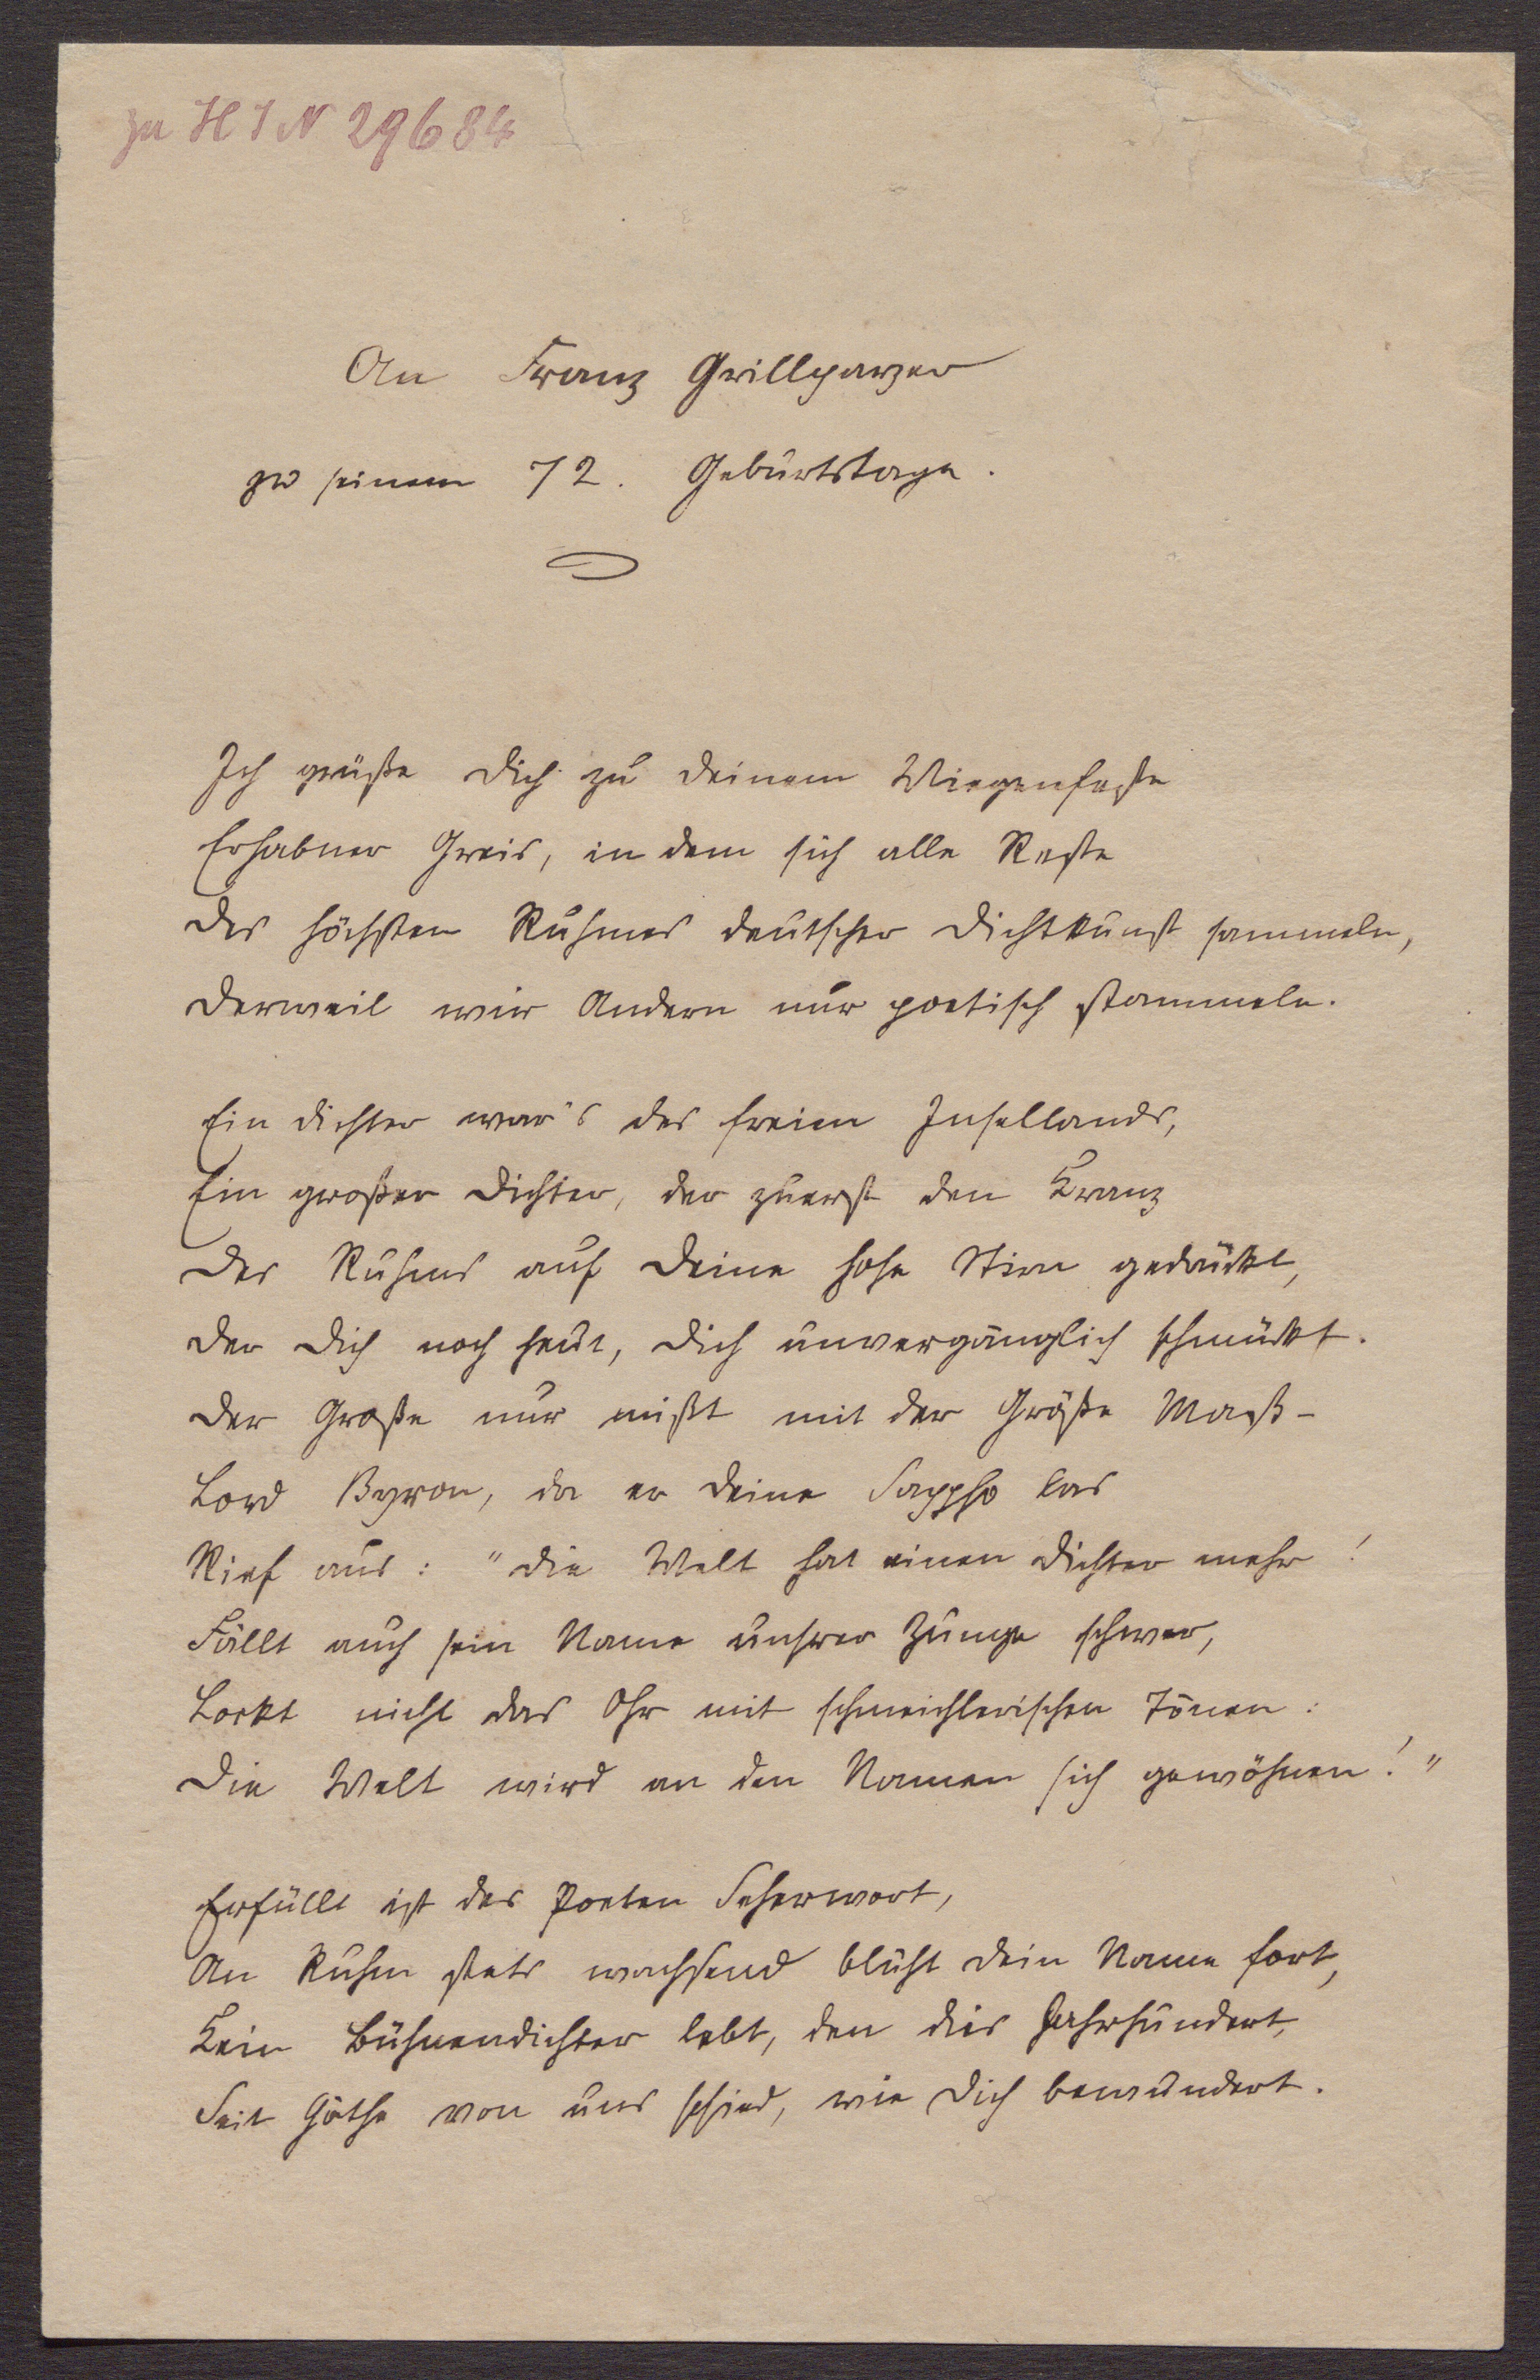 zu H I N 29684
An Franz Grillparzer
zu seinem 72. Geburtstage.
Ich grüße Dich zu Deinem Wiegenfeste
Erhabner Greis, in dem sich alle Reste
Des höchsten Ruhmes deutscher Dichtkunst sammeln,
Derweil wir Andern nur poetisch stammeln.
Ein Dichter war's des freien Insellands,
Ein großer Dichter, der zuerst den Kranz
Des Ruhms auf Deine hohe Stirn gedrückt,
Der Dich noch heut, Dich unvergänglich schmückt.
Der Große nur mißt mit der Größe Maß –
Lord Byron, da er Deine Sappho las
Rief aus: "Die Welt hat einen Dichter mehr!
Fällt auch sein Name unsrer Zunge schwer,
Lockt nicht das Ohr mit schmeichlerischen Tönen:
Die Welt wird an den Namen sich gewöhnen!"
Erfüllt ist des Poeten Seherwort,
An Ruhm stets wachsend blüht Dein Name fort,
Kein Bühnendichter lebt, den dies Jahrhundert,
Seit Göthe von uns schied, wie Dich bewundert.